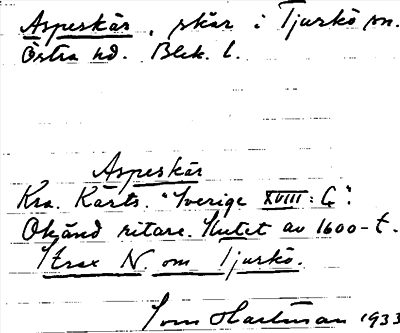 Asperskär, skär i Tjurkö sn.
Östra hd. Blek. l.
Asperskär
Kra. Kartv. "Sverige XVIII: G".
Okänd ritare. Slutet av 1600-t.
Strax N. om Tjurkö.
Hartman 1933